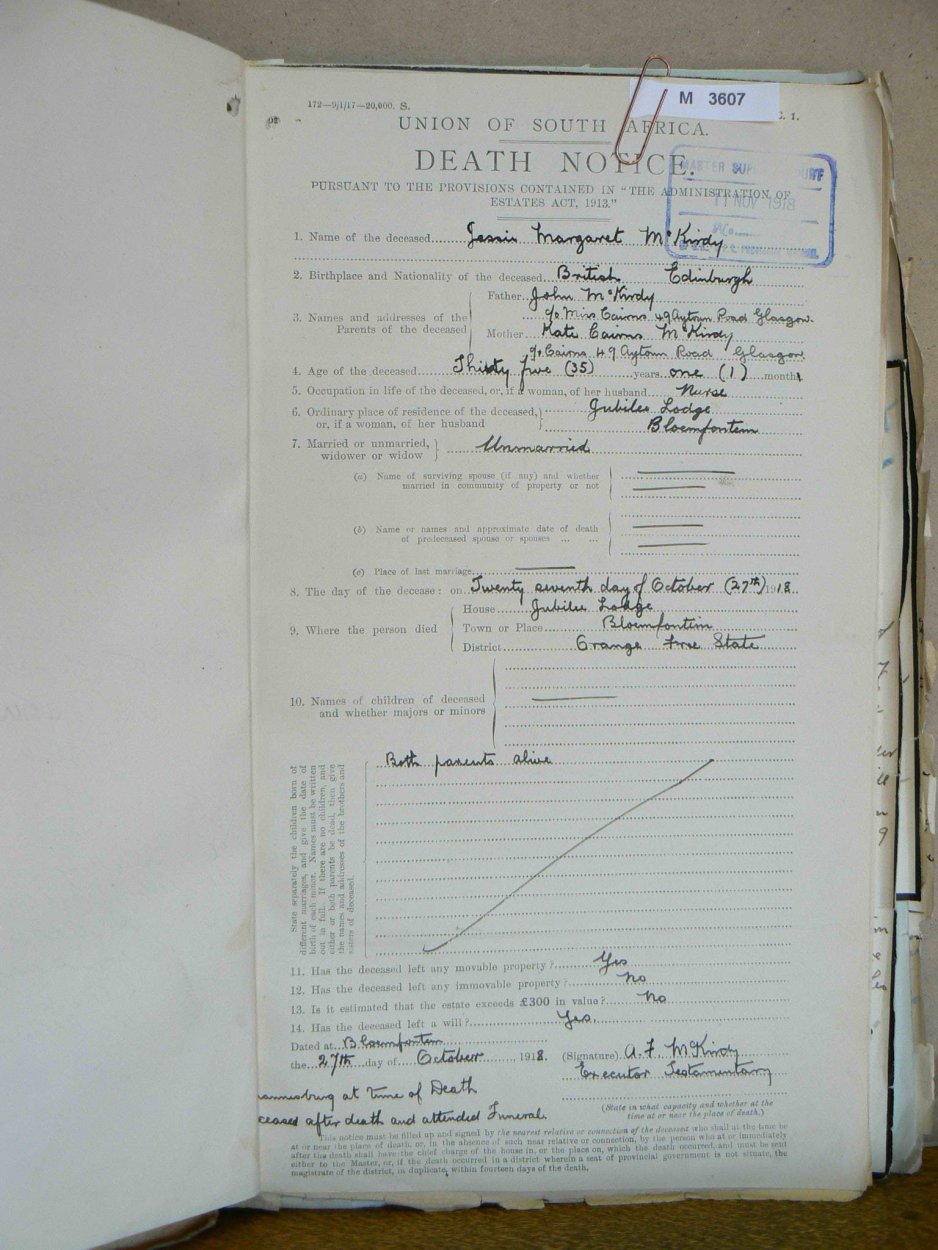 172—9/1/17—20,000. S.
M 3607
. 1.
UNION OF SOUTH AFRICA.
DEATH NOTICE.
MASTER SUP
11 NOV 1918
PURSUANT TO THE PROVISIONS CONTAINED IN "THE ADMINISTRATION OF
ESTATES ACT, 1913."
1. Name of the deceased Jessie Margaret McKirdy
2. Birthplace and Nationality of the deceased British Edinburgh
3. Names and addresses of the Parents of the deceased
Father John McKirdy
c/o Miss Cairns 49 Aytoun Road Glasgow.
Mother Kate Cairns McKirdy
c/o Cairns 49 Aytoun Road Glasgow
4. Age of the deceased Thirty five (35) years one (1) months
5. Occupation in life of the deceased, or, if a woman, of her husband Nurse
6. Ordinary place of residence of the deceased, Jubilee Lodge
or, if a woman, of her husband Bloemfontein
7. Married or unmarried, widower or widow Unmarried
(a) Name of surviving spouse (if any) and whether
married in community of property or not
(b) Name or names and approximate date of death
of predeceased spouse or spouses ... ...
(c) Place of last marriage
8. The day of the decease: on Twenty seventh day of October (27th) 1918
9. Where the person died
House Jubilee Lodge
Town or Place Bloemfontein
District Orange Free State
10. Names of children of deceased
and whether majors or minors
State separately the children born of
different marriages, and give the date of
birth of each minor. Names must be written
out in full. If there are no children, and
either or both parents be dead, then give
the names and addresses of the brothers and
sisters of deceased.
Both parents alive
11. Has the deceased left any movable property? Yes
12. Has the deceased left any immovable property? No
13. Is it estimated that the estate exceeds £300 in value? No
14. Has the deceased left a will? Yes.
Dated at Bloemfontein
the 27th day of October, 1918. (Signature) A. F. McKirdy
Executor Testamentary
(State in what capacity and whether at the
time at or near the place of death.)
annesburg at time of Death
ceased after death and attended Funeral.
This notice must be filled up and signed by the nearest relative or connection of the deceased who shall at the time be
at or near the place of death, or, in the absence of such near relative or connection, by the person who at or immediately
after the death shall have the chief charge of the house in, or the place on, which the death occurred, and must be sent
either to the Master, or, if the death occurred in a district wherein a seat of provincial government is not situate, the
magistrate of the district, in duplicate, within fourteen days of the death.